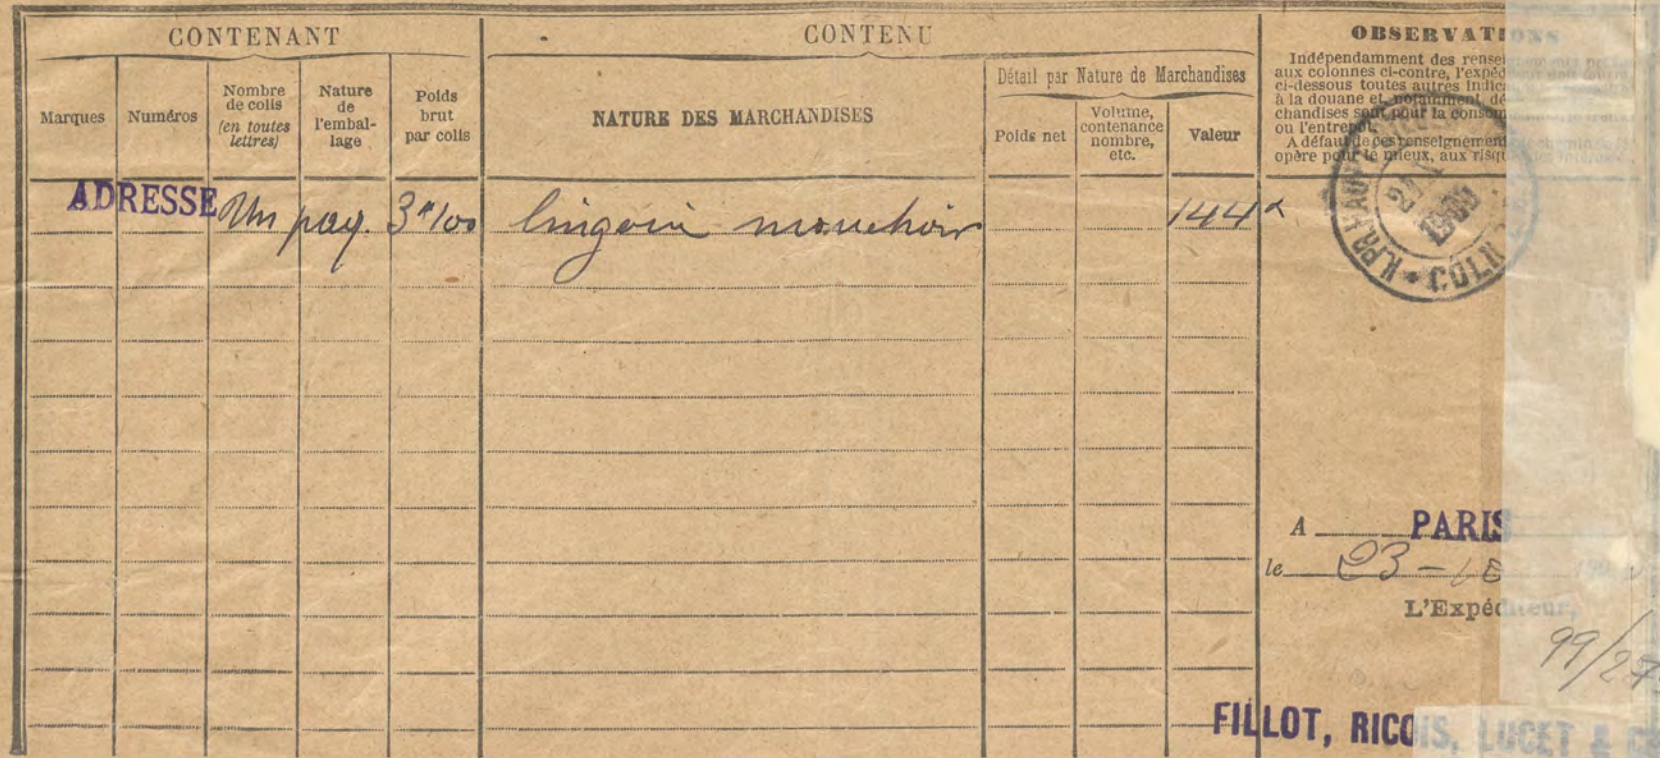 CONTENANT
CONTENU
OBSERVATIONS
Indépendamment des rensei
aux colonnes ci-contre, l'expéd
ci-dessous toutes autres indic
à la douane et, notamment, dé
chandises sont pour la consom
ou l'entrepôt.
A défaut de ces renseignements
opère pour le mieux, aux risqu
Marques
Numéros
Nombre
de colis
(en toutes
lettres)
Nature
de
l'embal-
lage
Poids
brut
par colis
NATURE DES MARCHANDISES
Détail par Nature de Marchandises
Poids net
Volume,
contenance
nombre,
etc.
Valeur
ADRESSE
Un paq. 3 k 100 lingerie mouchoir 144
A PARIS
le 23-10
L'Expéditeur,
99/27
FILLOT, RICOIS, LUCET & Cie